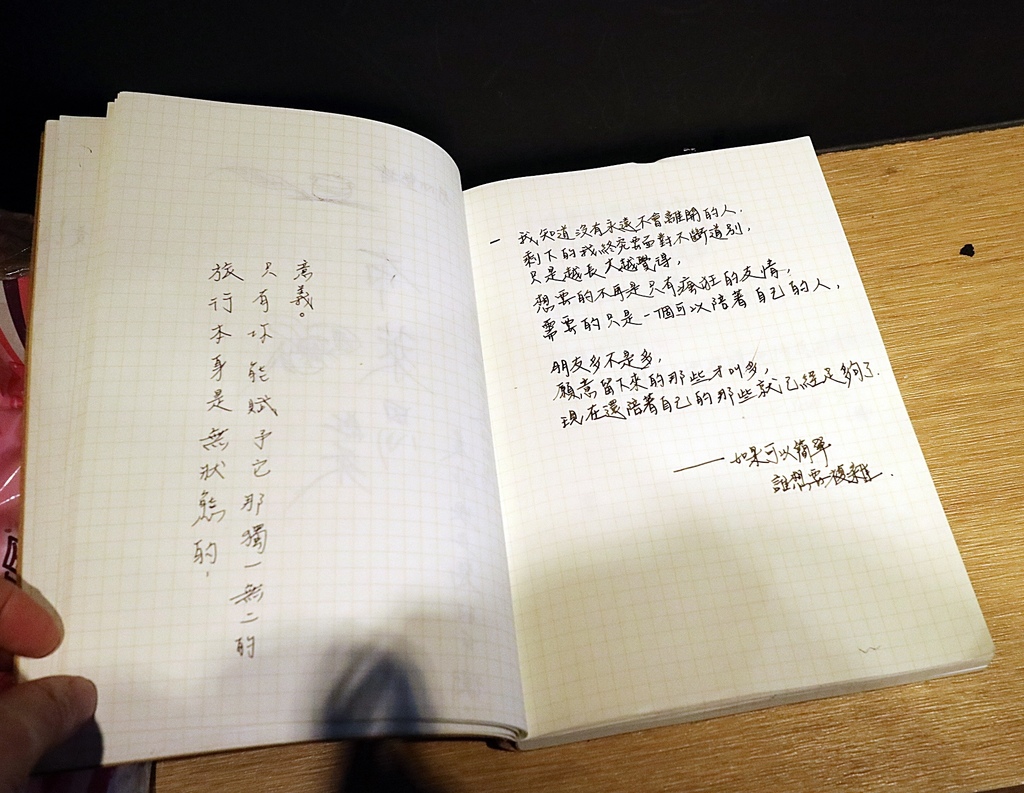 旅行本身是無狀態的,
只有你能賦予它那獨一無二的
意義。
— 我知道沒有永遠不會離開的人.
剩下的我終究要面對不斷道別,
只是越長大越覺得,
想要的不再是只有瘋狂的友情,
需要的只是一個可以陪著自己的人,
朋友多不是多,
願意留下來的那些才叫多,
現在還陪著自己的那些就已經足夠了.
——如果可以簡單
誰想要複雜.